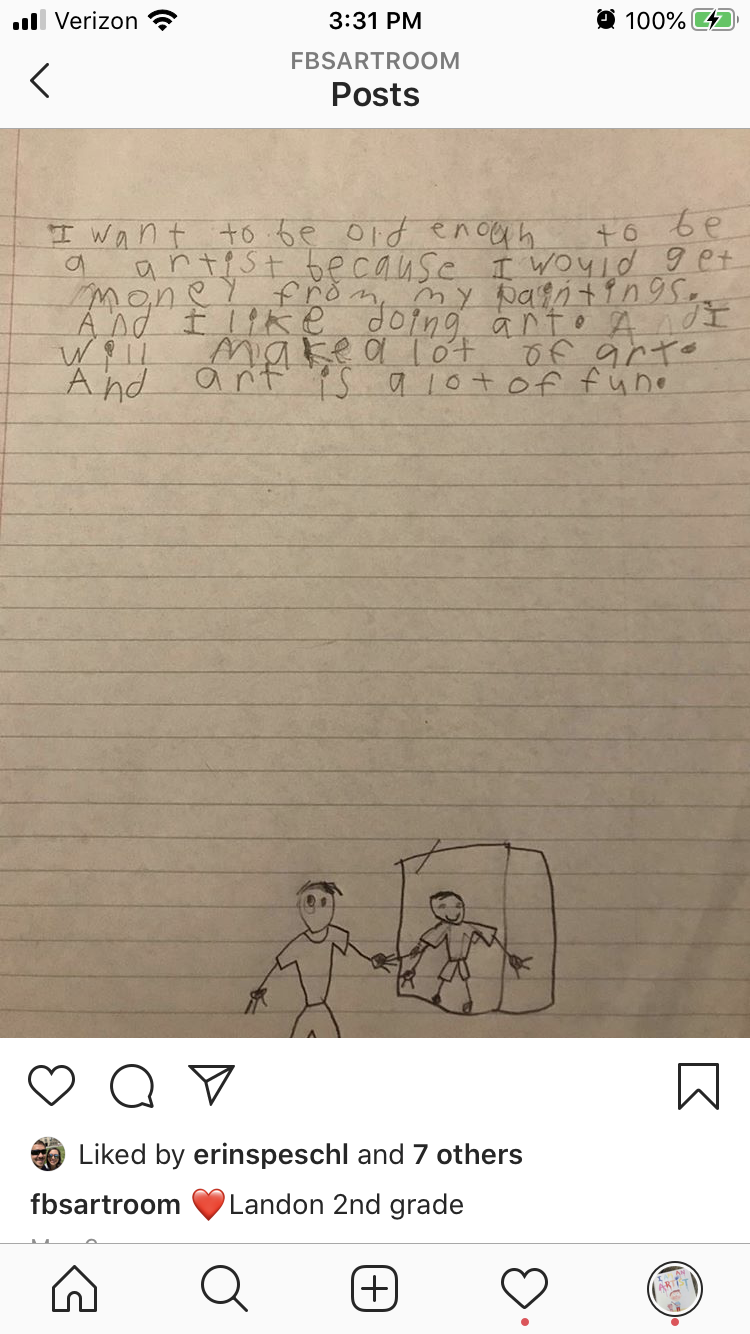 Verizon 3:31 PM 100%
FBSARTROOM
Posts
I want to be old enough to be
a artist because I would get
money from my paintings.
And I like doing art. And I
will make a lot of art.
And art is a lot of fun.
Liked by erinspeschl and 7 others
fbsartroom ❤️Landon 2nd grade